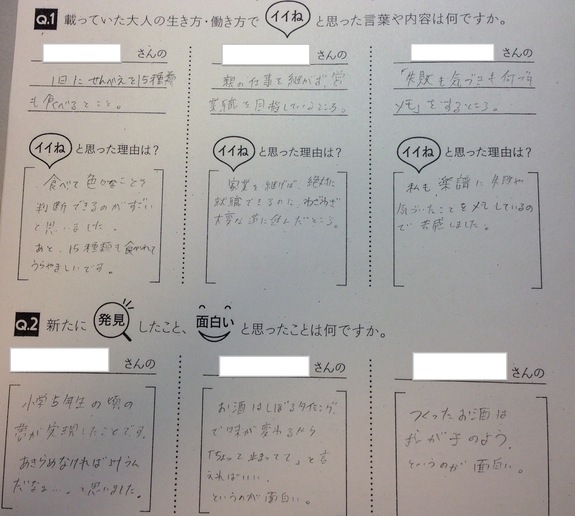 Q.1 載っていた大人の生き方・働き方で イイね と思った言葉や内容は何ですか。
さんの
1日にせんべえを15種類
も食べるとこと。
さんの
親の仕事を継がず、営
業職を目指しているところ。
さんの
「失敗も気づきも何でも
メモ」をするところ。
イイね と思った理由は?
食べて色々なことを
判断できるのがすごい
と思いました。
あと、15種類も食べれて
うらやましいです。
イイね と思った理由は?
家業を継げば、絶対に
就職できるのに、わざわざ
大変な道に進んだところ。
イイね と思った理由は?
私も楽譜に失敗や
気づいたことをメモしているの
で共感しました。
Q.2 新たに 発見 したこと、 面白い と思ったことは何ですか。
さんの
小学5年生の頃の
夢が実現したことです。
あきらめなければ叶うん
だなぁ…。と思いました。
さんの
お酒はしぼるタイミング
で味が変わるから
「ちょって止まってて」と言
えればいい。
というのが面白い。
さんの
つくったお酒は
我が子のよう。
というのが面白い。